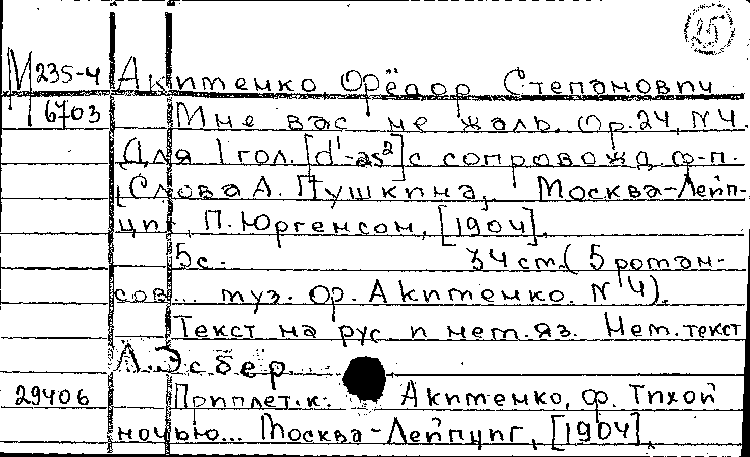 25
М 235-4 Акименко, Фёдор Степанович
6703 Мне вас не жаль. Ор. 24, N 4.
Для 1 гол. [d¹-as²] с сопровожд. ф-п.
Слова А. Пушкина, Москва-Лейп-
циг, П. Юргенсон, [1904].
5с. 34 см. (5 роман-
сов... муз. Ф. Акименко. N 4).
Текст на рус. и нем. яз. Нем. текст
Л. Эсбер...
29406 Приплет. к: Акименко, Ф. Тихой
ночью... Москва-Лейпциг, [1904].